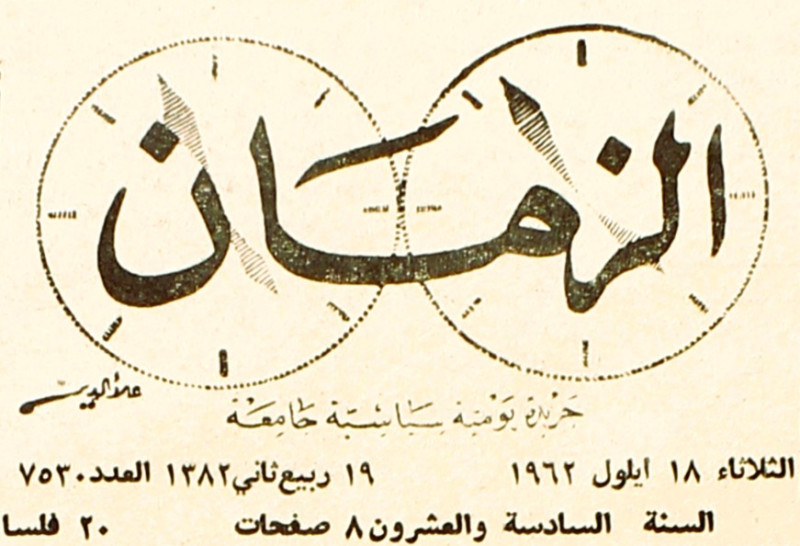 الزمان
علاءالدين
جريدة يومية سياسية جامعة
الثلاثاء ١٨ ايلول ١٩٦٢ ١٩ ربيع ثاني ١٣٨٢ العدد ٧٥٣٠
السنة السادسة والعشرون ٨ صفحات ٢٠ فلسا